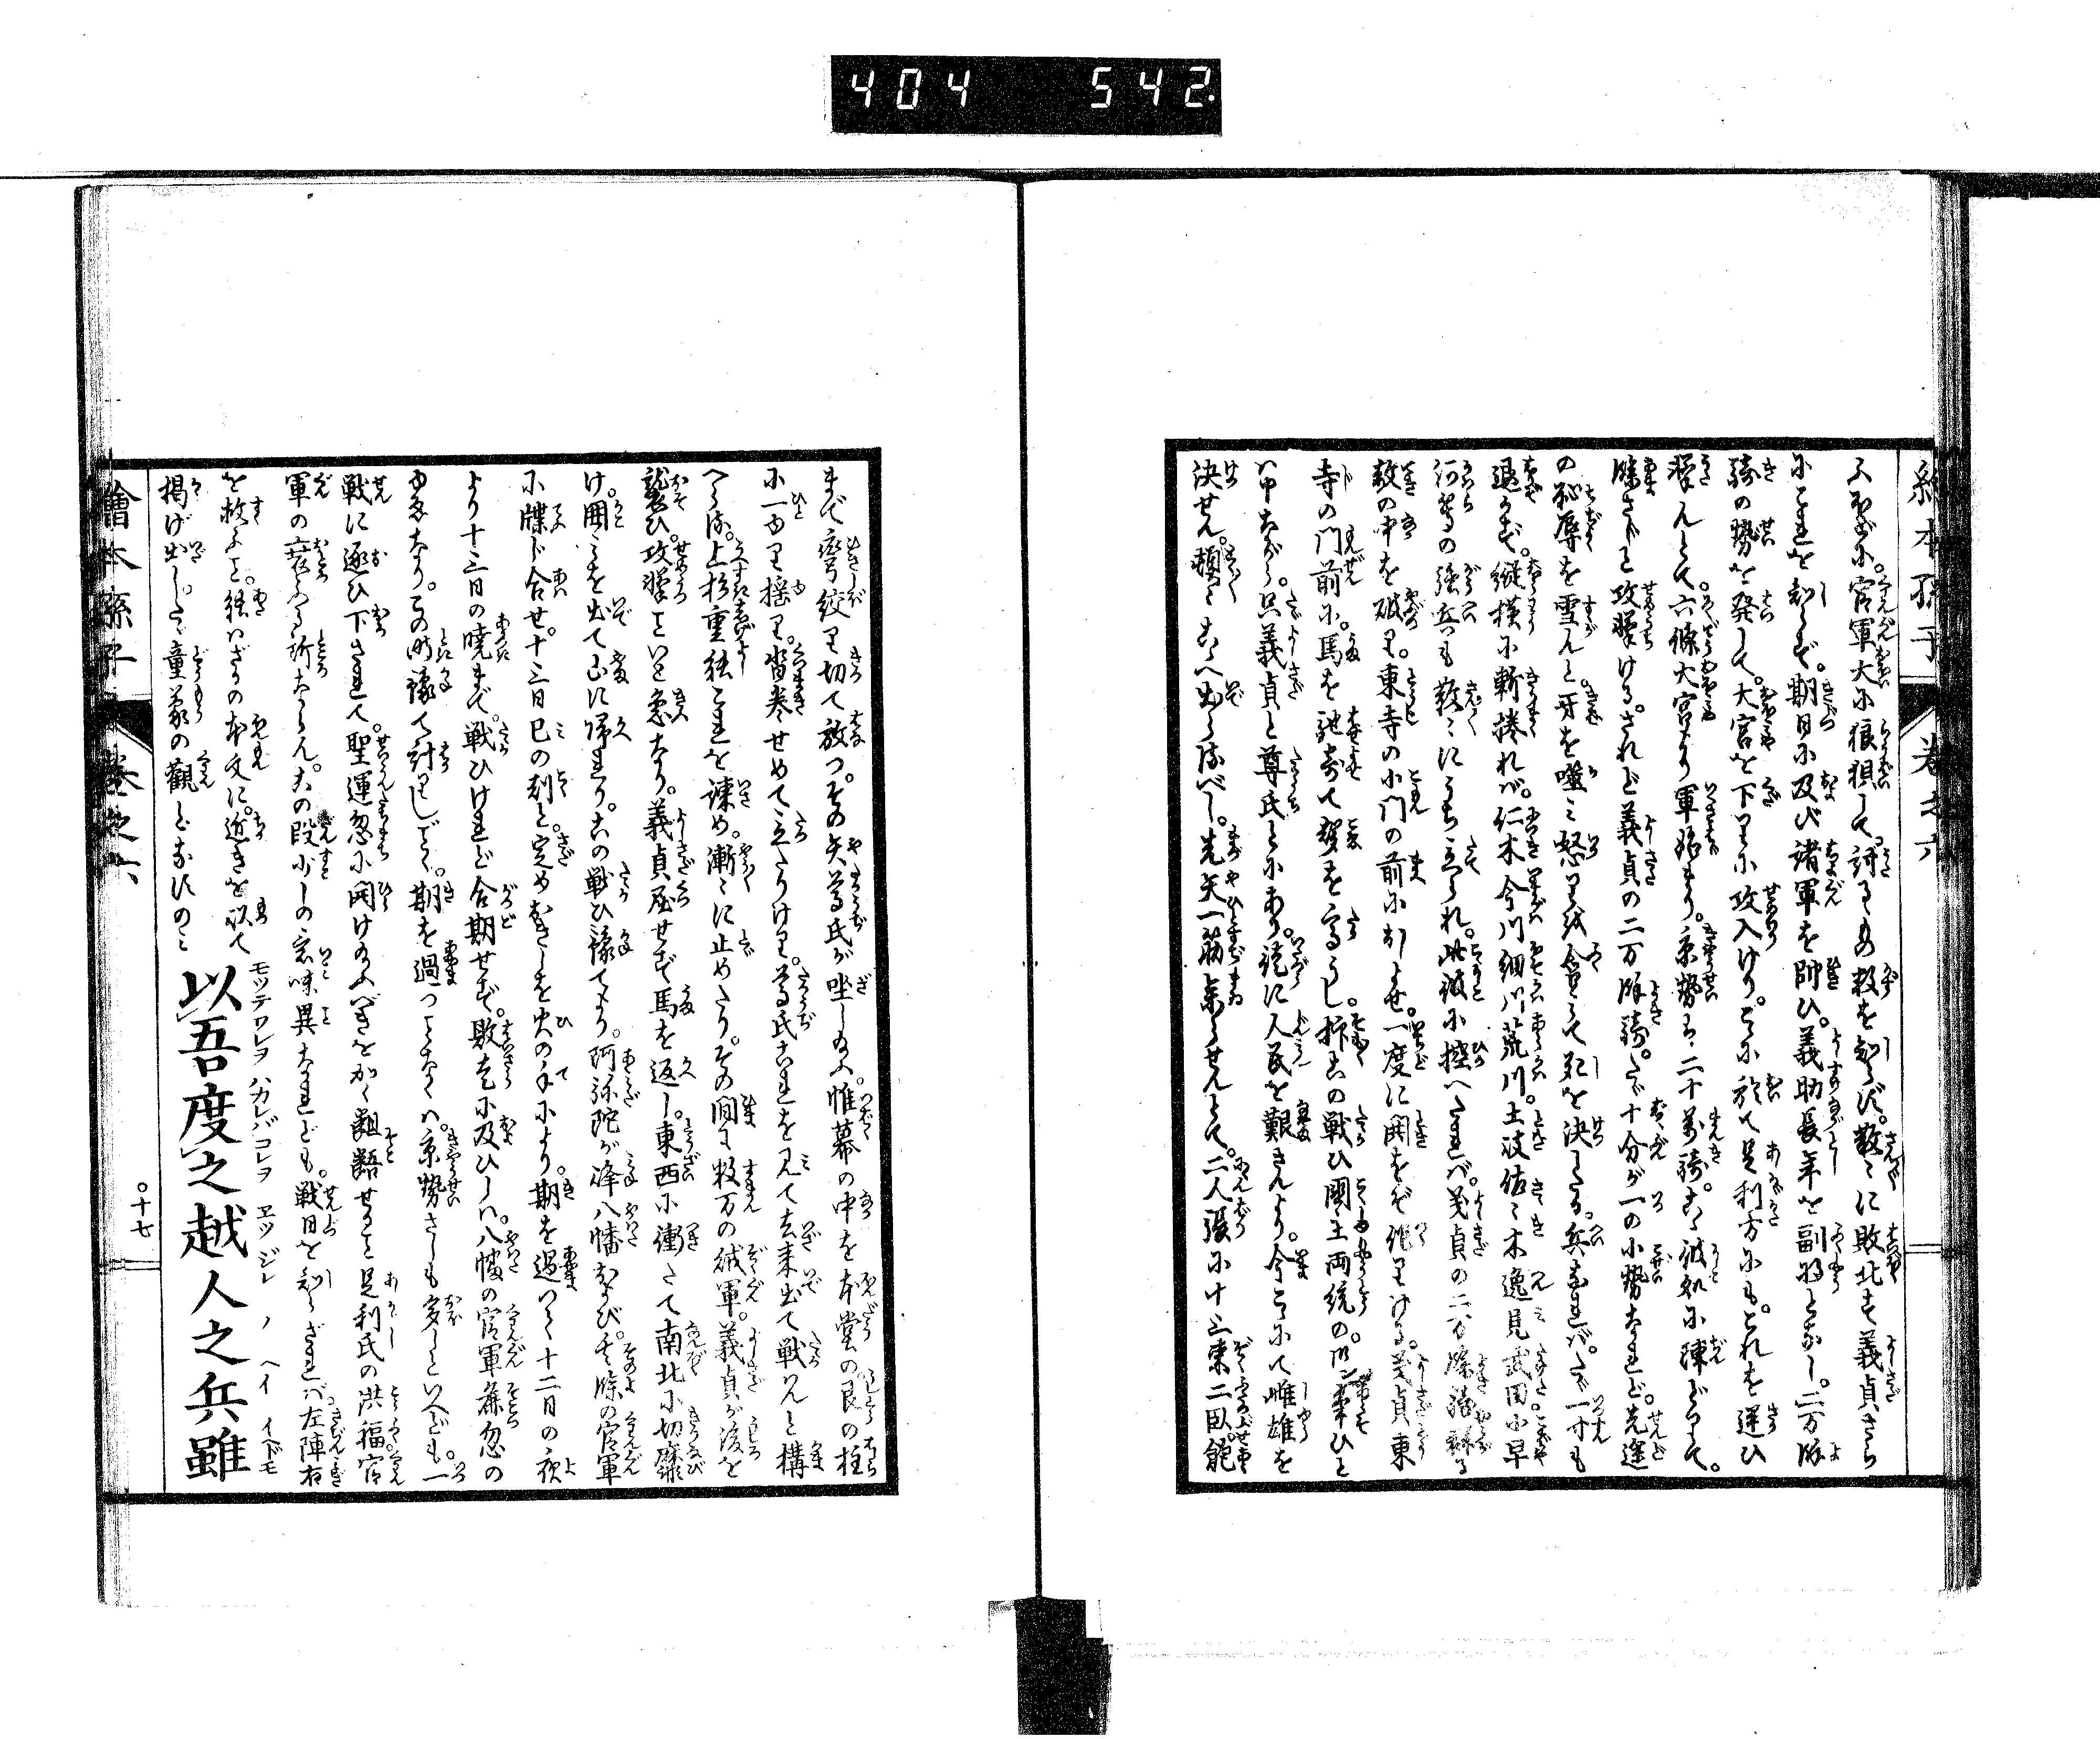 404 542.
繪本孫子 卷之六
ふほどに。官軍大に狼狽して討るゝ数を知らず。散々に敗北す義貞さら
にこれを知らず。期日に及び諸軍を帥ひ。義助長年を副将となし。二万餘
騎の勢を発して。大宮を下りに攻入けり。こゝに於て足利方にも。これを逆ひ
撃んとて。六條大宮より軍始まり。京勢は二十萬騎。こゝ彼処に陣どりて。
餘さじと攻撃ける。されど義貞の二万餘騎。たゞ十分が一の小勢なれど。先途
の恥辱を雪んと。牙を噛み怒り
死を決したる。兵なれバ。たゞ一寸も
退かず。縦横に斬捲れバ。仁木今川細川荒川。土岐佐々木逸見武田小早
河等の強兵も散々にうち立られ。此彼に控へたれバ。義貞の二万餘
数の中を破り。東寺の小門の前におしよせ。一度に鬨をぞ作りける。義貞東
寺の門前に。馬を馳寄て聲を高うし。抑この戦ひ國主両統の。御 ひと
ハ申ながら。只義貞と尊氏とにあり。徒に人民を艱きんより。今こゝにて雌雄を
決せん。 こゝへ出らるべし。先矢一筋 らせんとて。二人張に十三束二臥飽
まで 絞り切て放つ。その矢尊氏が坐し給ふ。帷幕の中を本堂の艮の柱
に一ゆり揺り。沓巻せめて立たりけり。尊氏これを見て去来出て戦ハんと構
へらる。上杉重能これを諫め。漸々に止めたり。その間に数万の賊軍。義貞が後を
襲ひ。攻撃こといと急なり。義貞屈せず馬を返し。東西に衝たて南北に切靡
け。囲みを出て山に帰れり。この戦ひ豫てより。阿弥陀が峰八幡および。その餘の官軍
に牒じ合せ。十三日巳の刻と。定めおきしを火の手により。期を過つて十二日の夜
より十三日の暁まで。戦ひけれど合期せず。敗走に及びしハ。八幡の官軍麁忽の
ゆゑなり。この時豫て計りしごとく。期を過つことなくハ。京勢さしも多しといへども。一
戦に逐ひ下されて。聖運忽に開け給ふべきをかく齟齬せること足利氏の洪福。官
軍の衰ふる所ならん。右の段少しの意味異なれども。戦日を知らざれバ。左陣右
を救ふこと。能ハざるの本文に。近きを以て
掲げ出し。たゞ童蒙の觀となすのミ
以吾度之越人之兵雖
モツテワレヲハカレバコレヲ ヱツジン ノ ヘイ イヘドモ
繪本孫子 卷之六
○十七